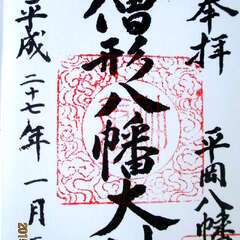 奉拝
平岡八幡
僧形八幡大
平成二十七年一月